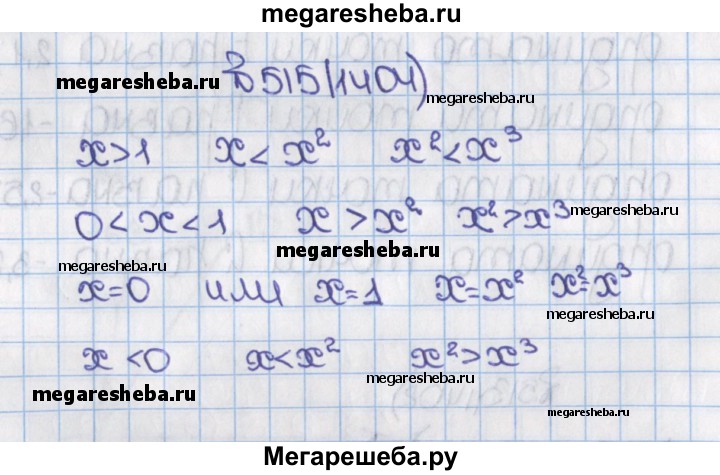 megaresheba.ru
№ 515(1404)
megaresheba.ru
megaresheba.ru
x>1 x< x² x²<x³
0<x<1 x >x² x²>x³
megaresheba.ru
megaresheba.ru
megaresheba.ru
x=0 или x=1 x=x² x²=x³
megaresheba.ru
x <0 x<x² x²>x³
megaresheba.ru
megaresheba.ru
megaresheba.ru
Мегарешеба.ру